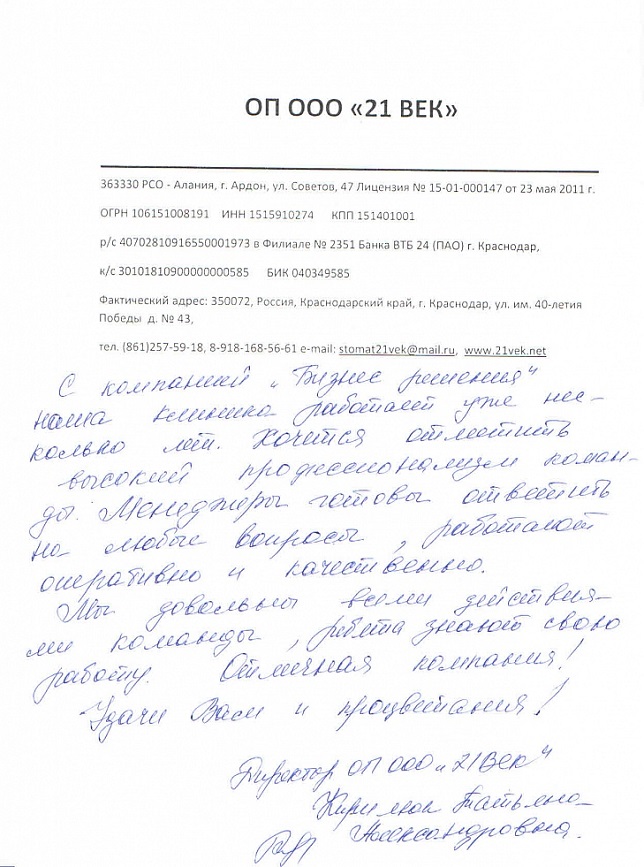 ОП ООО «21 ВЕК»
363330 РСО - Алания, г. Ардон, ул. Советов, 47 Лицензия № 15-01-000147 от 23 мая 2011 г.
ОГРН 106151008191 ИНН 1515910274 КПП 151401001
р/с 40702810916550001973 в Филиале № 2351 Банка ВТБ 24 (ПАО) г. Краснодар,
к/с 30101810900000000585 БИК 040349585
Фактический адрес: 350072, Россия, Краснодарский край, г. Краснодар, ул. им. 40-летия
Победы д. № 43,
тел. (861)257-59-18, 8-918-168-56-61 e-mail: stomat21vek@mail.ru, www.21vek.net
С компанией „Бизнес решения“
наша клиника работает уже нес-
колько лет. Хочется отметить
высокий профессионализм коман-
ды. Менеджеры готовы ответить
на любые вопросы, работают
оперативно и качественно.
Мы довольны всеми действия-
ми команды, ребята знают свою
работу. Отличная компания!
Удачи Вам и процветания!
Директор ОП ООО „21 Век“
Татьяна
Александровна.